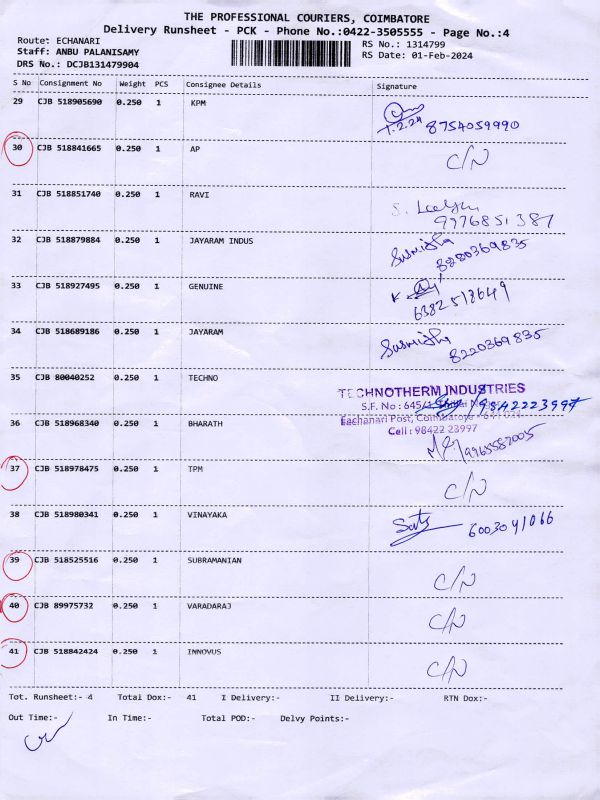 THE PROFESSIONAL COURIERS, COIMBATORE
Delivery Runsheet - PCK - Phone No.:0422-3505555 - Page No.:4
Route: ECHANARI RS No.: 1314799
Staff: ANBU PALANISAMY RS Date: 01-Feb-2024
DRS No.: DCJB131479904
S No Consignment No Weight PCS Consignee Details Signature
29 CJB 518905690 0.250 1 KPM
1.2.24 8754059990
30 CJB 518841665 0.250 1 AP C/N
31 CJB 518851740 0.250 1 RAVI
9976851387
32 CJB 518879884 0.250 1 JAYARAM INDUS Susmitha
8220369835
33 CJB 518927495 0.250 1 GENUINE
6382518649
34 CJB 518689186 0.250 1 JAYARAM Susmitha 8220369835
35 CJB 80040252 0.250 1 TECHNO
TECHNOTHERM INDUSTRIES
S.F. No : 645/1 9842223997
Eachanari Post, Coimbatore
Cell : 98422 23997
36 CJB 518968340 0.250 1 BHARATH
9965582005
37 CJB 518978475 0.250 1 TPM C/N
38 CJB 518980341 0.250 1 VINAYAKA 6003041066
39 CJB 518525516 0.250 1 SUBRAMANIAN C/N
40 CJB 89975732 0.250 1 VARADARAJ C/N
41 CJB 518842424 0.250 1 INNOVUS C/N
Tot. Runsheet:- 4 Total Dox:- 41 I Delivery:- II Delivery:- RTN Dox:-
Out Time:- In Time:- Total POD:- Delvy Points:-